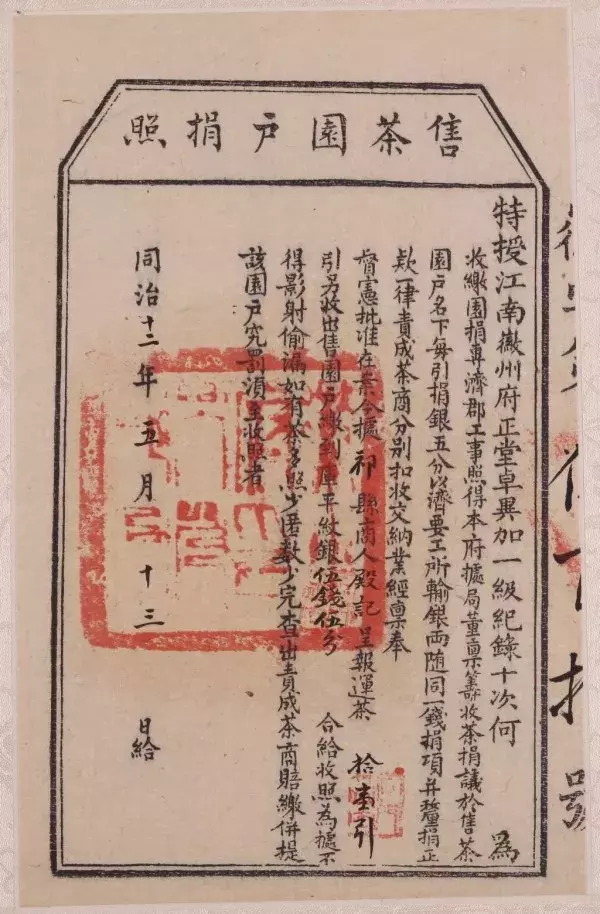 售茶園戶捐照
特授江南徽州府正堂卓異加一級紀錄十次何 為
收繳園捐專濟郡工事照得本府據局董稟籌收茶捐議於售茶
園戶名下每引捐銀五分以濟要工所輸銀両随同一錢捐項并釐捐正
款一律責成茶商分別扣收交納業經稟奉
督憲批准在案今據 祁 縣商人 殿記 呈報運茶 拾壹引
引另收出售園戶繳到庫平紋銀伍錢伍分 合給收照為據不
得影射偷漏如有茶多照少匿數少完查出責成茶商賠繳併提
該園戶究罰湏至收照者
同治十二年五月十三 日給
號